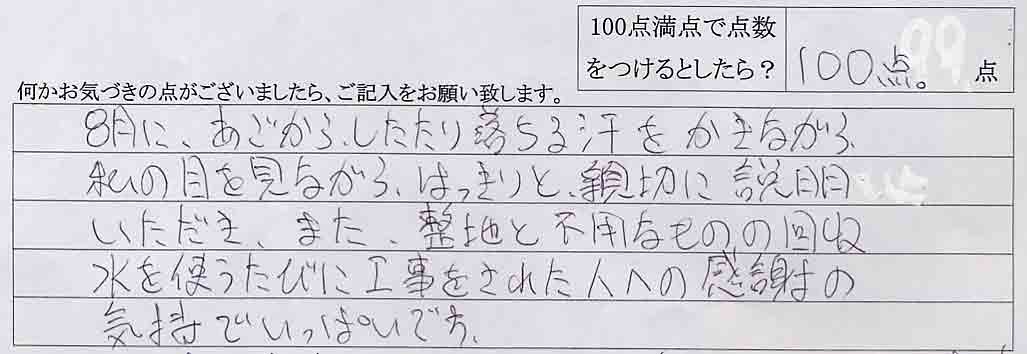 100点満点で点数
をつけるとしたら？
100点。
点
何かお気づきの点がございましたら、ご記入をお願い致します。
8月に、あごから、したたり落ちる汗をかきながら、
私の目を見ながら、はっきりと、親切に説明
いただき、また、整地と不用なものの回収
水を使うたびに工事をされた人への感謝の
気持でいっぱいです。